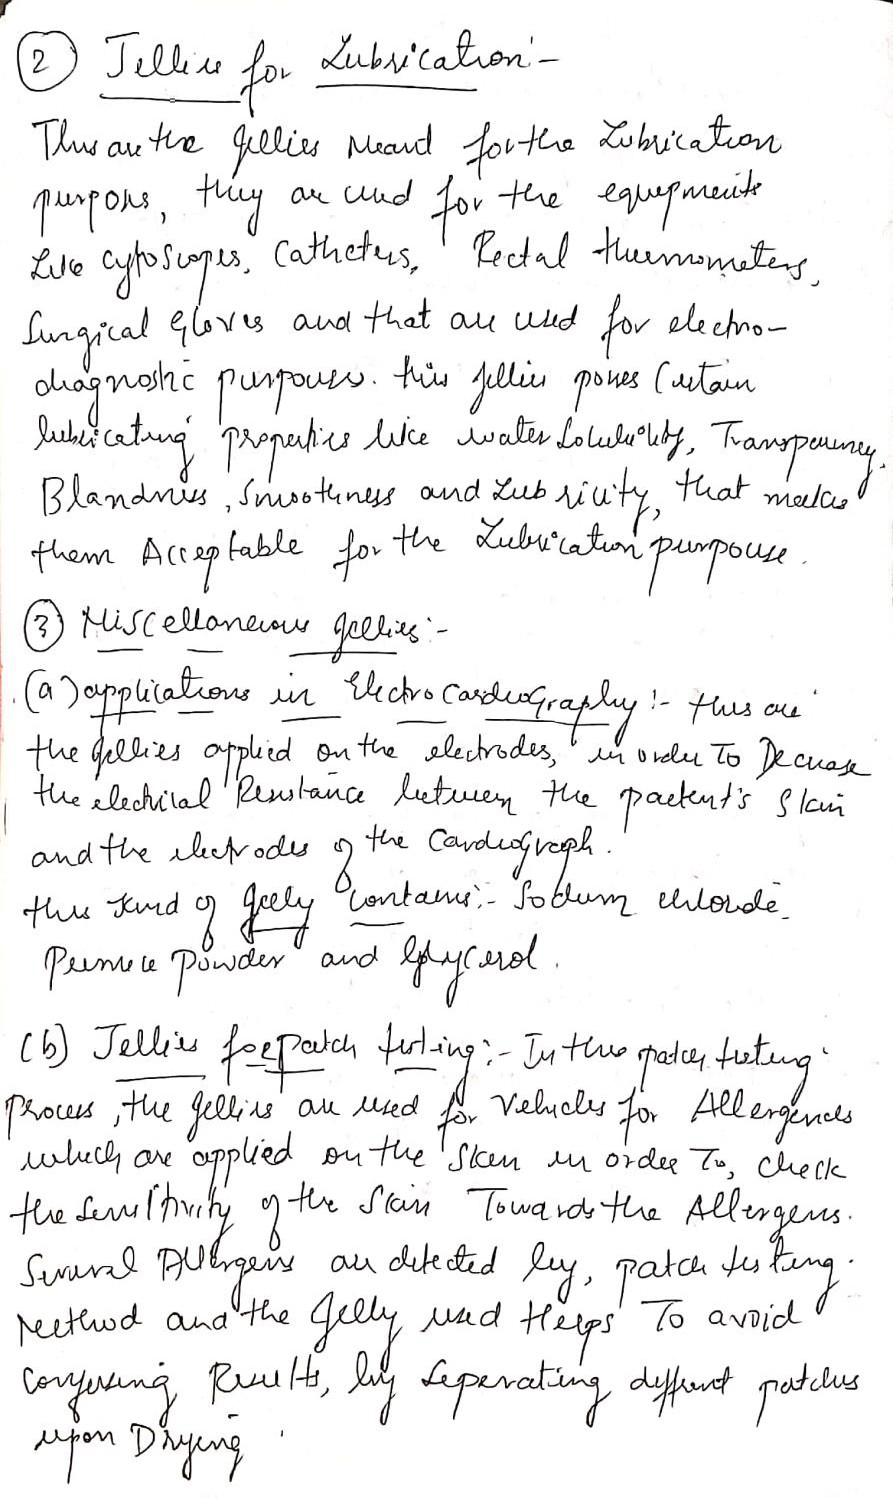 ② Jellies for Lubrication:-
Thus are the Jellies Meant for the Lubrication
purpose, they are used for the equepments
Like cytoscopes, Catheters, Rectal thermometers,
Surgical Gloves and that are used for electro-
diagnostic purpouses. this Jellies poses Certain
lubricating properties like water Solubility, Transparency,
Blandness, Smoothness and Lubricity, that makes
them Acceptable for the Lubrication purpouse.
③ Miscellaneous Jellies:-
(a) applications in ElectroCardioGraphy:- thus are
the Jellies applied on the electrodes, in order To Decrease
the electrical Resistance between the patient's Skin
and the electrodes of the CardioGraph.
this kind of Jelly contains:- Sodium chloride
Pumice Powder and Glycerol.
(b) Jellies for patch testing:- In this patch testing
Process, the Jellies are used for Vehicles for Allergends
which are applied on the Skin in order To, check
the Sensitivity of the Skin Towards the Allergens.
Several Allergens are detected by, patch testing
Method and the Jelly used Helps To avoid
confusing Results, by Seperating diffrent patches
upon Drying.